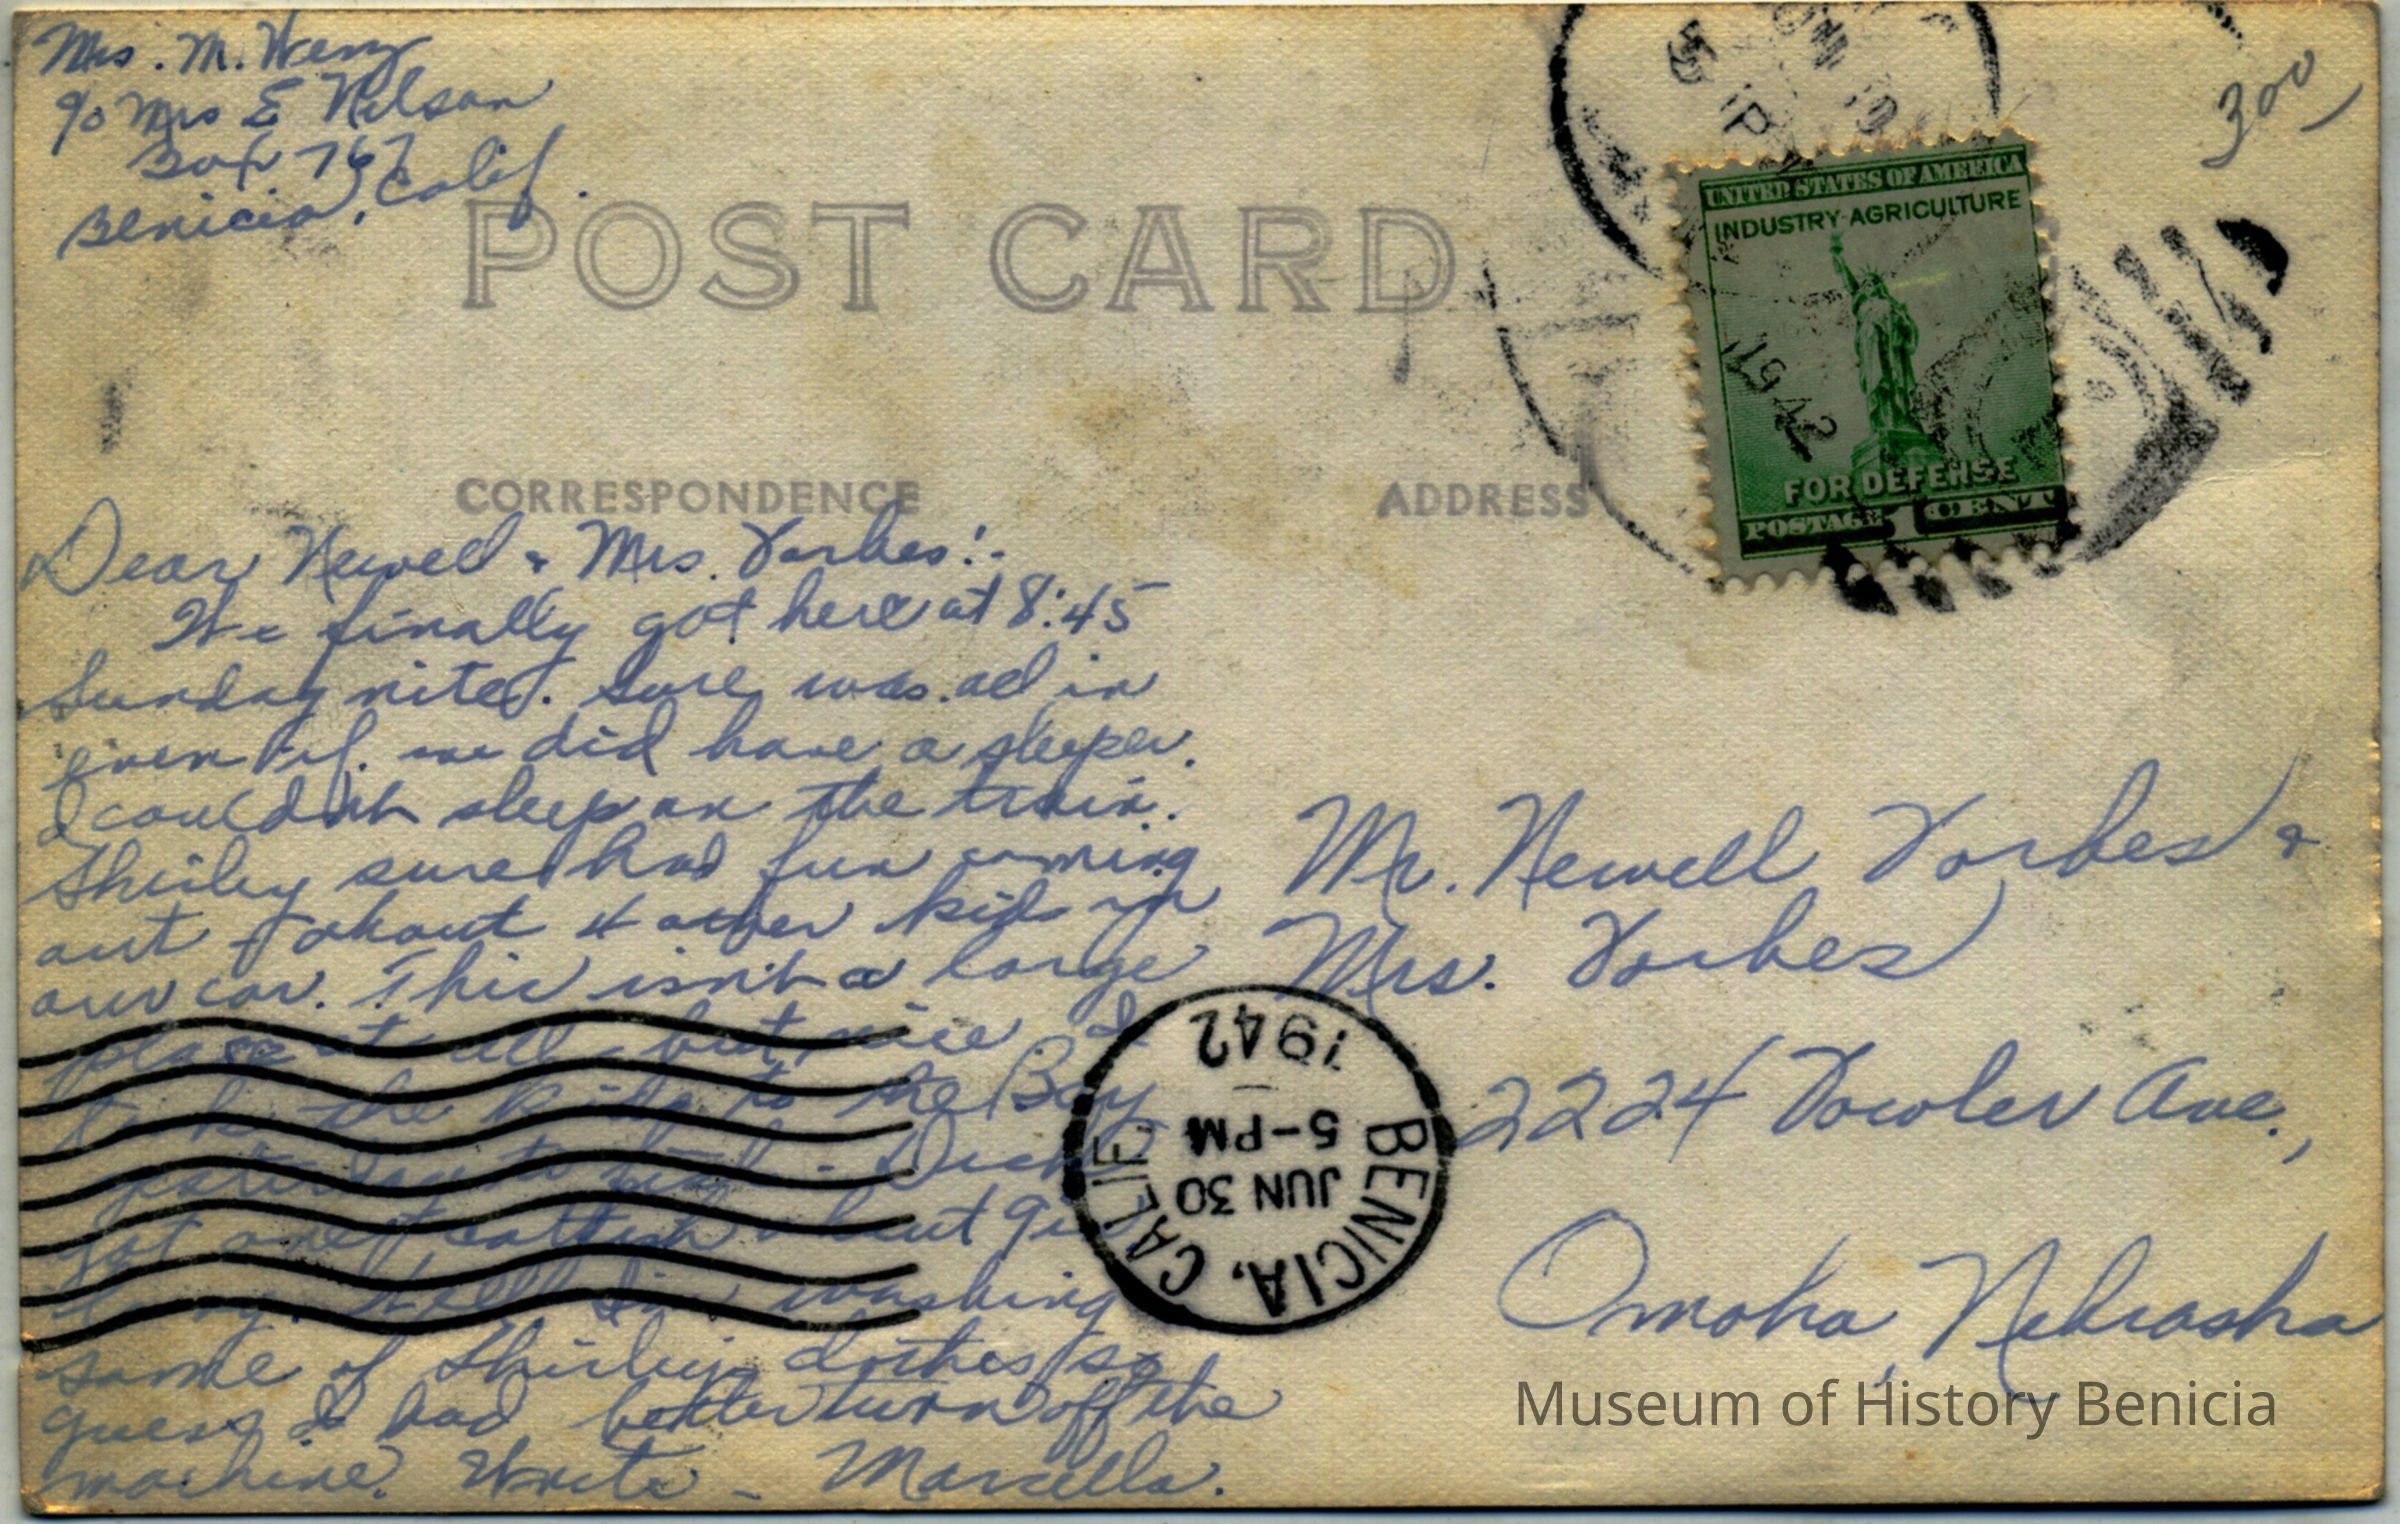 Mrs. M. Wenz
c/o Mrs E Nelson
Box 767
Benicia, Calif.
300
5 PM
1942
UNITED STATES OF AMERICA
INDUSTRY-AGRICULTURE
FOR DEFENSE
POSTAGE 1 CENT
POST CARD
CORRESPONDENCE
ADDRESS
Dear Newell & Mrs. Vorbes:-
We finally got here at 8:45
Sunday nite. Sure was all in
even if we did have a sleeper.
I couldn't sleep on the train.
Shirley sure had fun coming
out about 4 other kids in
our car. This isn't a large
place at all but nice I
the kids to the Bay
yesterday to fish - Dick
got about 9
Well I'm washing
some of Shirley clothes so
guess I had better turn off the
machine. Write - Marcella.
Mr. Newell Vorbes &
Mrs. Vorbes
2224 Fowler Ave.,
Omaha, Nebraska
BENICIA, CALIF.
JUN 30
5-PM
1942
Museum of History Benicia